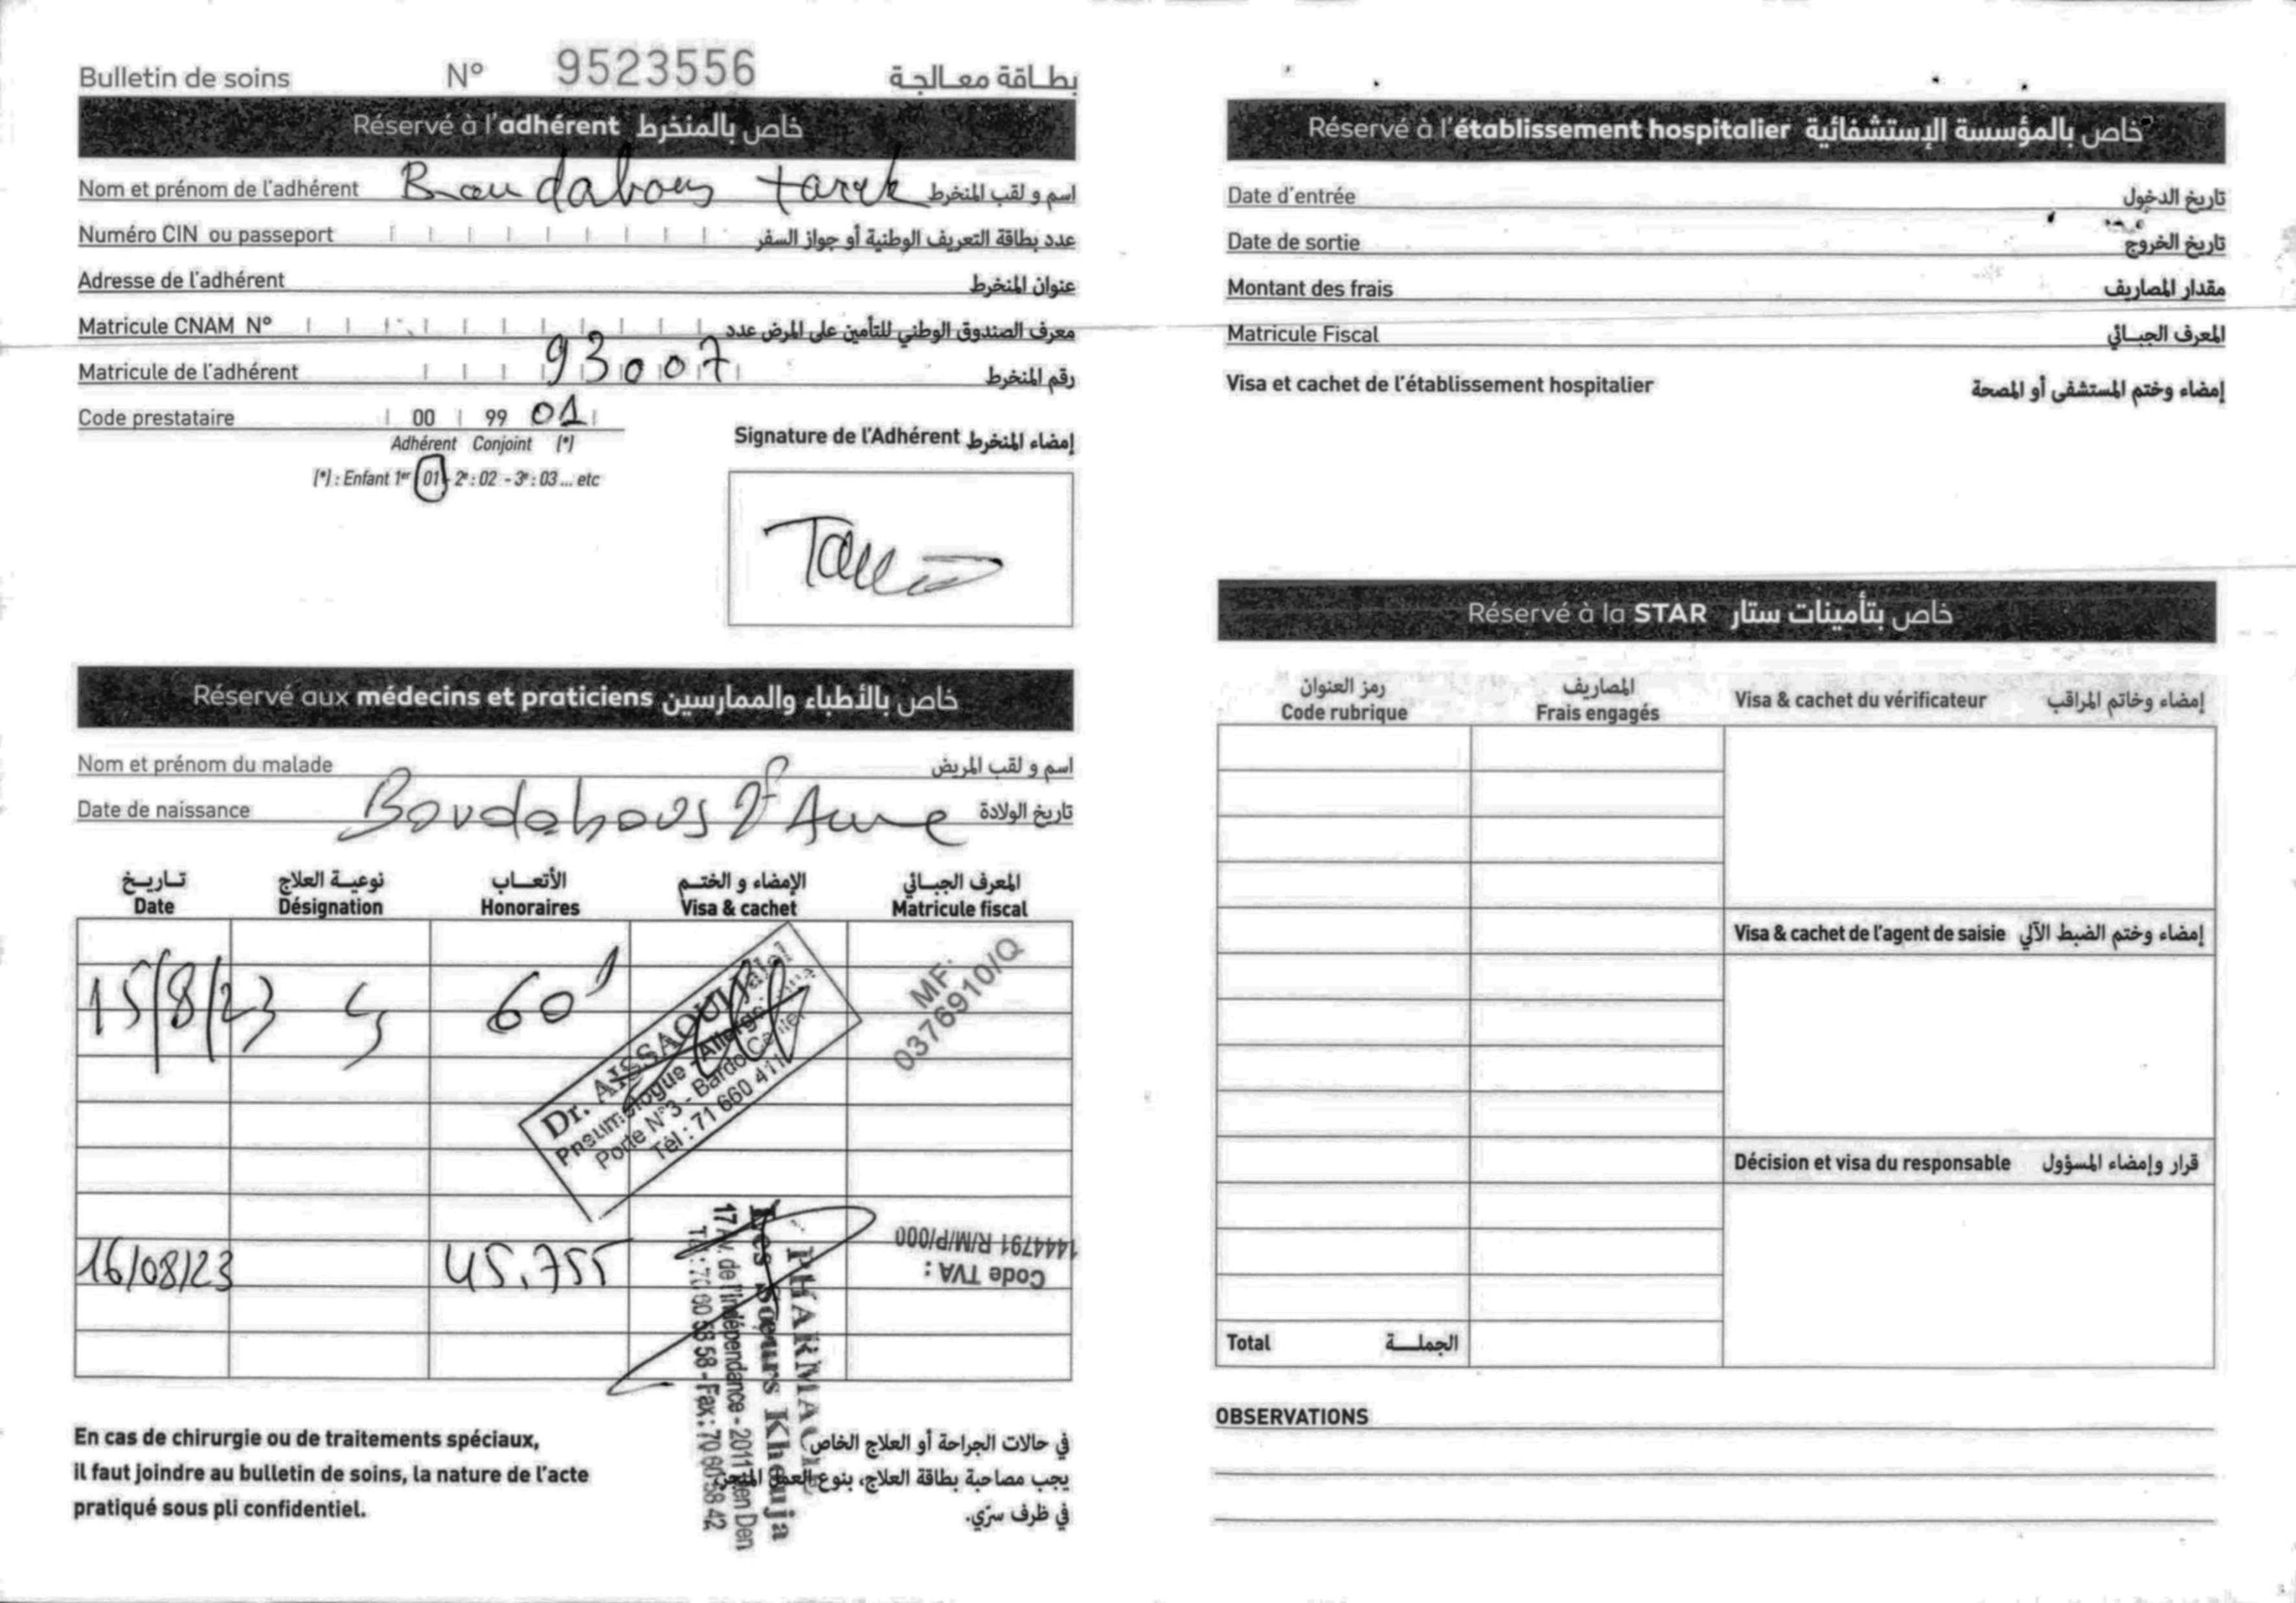 Bulletin de soins N° 9523556 بطاقة معالجة
Réservé à l'adhérent خاص بالمنخرط
Nom et prénom de l'adhérent Boudabous tarek اسم و لقب المنخرط
Numéro CIN ou passeport عدد بطاقة التعريف الوطنية أو جواز السفر
Adresse de l'adhérent عنوان المنخرط
Matricule CNAM N° معرف الصندوق الوطني للتأمين على المرض عدد
Matricule de l'adhérent 93007 رقم المنخرط
Code prestataire 00 99 01
Adhérent Conjoint (*)
(*) : Enfant 1er 01 - 2e : 02 - 3e : 03 ... etc
Signature de l'Adhérent إمضاء المنخرط
Réservé aux médecins et praticiens خاص بالأطباء والممارسين
Nom et prénom du malade اسم و لقب المريض
Date de naissance Boudabous تاريخ الولادة
تاريخ نوعية العلاج الأتعاب الإمضاء و الختم المعرف الجبائي
Date Désignation Honoraires Visa & cachet Matricule fiscal
15/8/23 60
Dr. AISSAOUI Jalel
Pneumologue - Allergo
Porte N°3 - Bardo Center
Tél : 71 660 411
MF:
0376910/Q
16/08/23 45,755
PHARMACIE
Les Soeurs Khouja
17 Av. de l'indépendance - 2011 Den Den
Tél : 70 60 58 58 - Fax : 70 60 58 42
Code TVA :
1444791 R/M/P/000
En cas de chirurgie ou de traitements spéciaux,
il faut joindre au bulletin de soins, la nature de l'acte
pratiqué sous pli confidentiel.
في حالات الجراحة أو العلاج الخاص
يجب مصاحبة بطاقة العلاج، بنوع العمل المنجز
في ظرف سرّي.
Réservé à l'établissement hospitalier خاص بالمؤسسة الإستشفائية
Date d'entrée تاريخ الدخول
Date de sortie تاريخ الخروج
Montant des frais مقدار المصاريف
Matricule Fiscal المعرف الجبائي
Visa et cachet de l'établissement hospitalier إمضاء وختم المستشفى أو المصحة
Réservé à la STAR خاص بتأمينات ستار
رمز العنوان المصاريف
Code rubrique Frais engagés Visa & cachet du vérificateur إمضاء وخاتم المراقب
Visa & cachet de l'agent de saisie إمضاء وختم الضبط الآلي
Décision et visa du responsable قرار وإمضاء المسؤول
Total الجملة
OBSERVATIONS